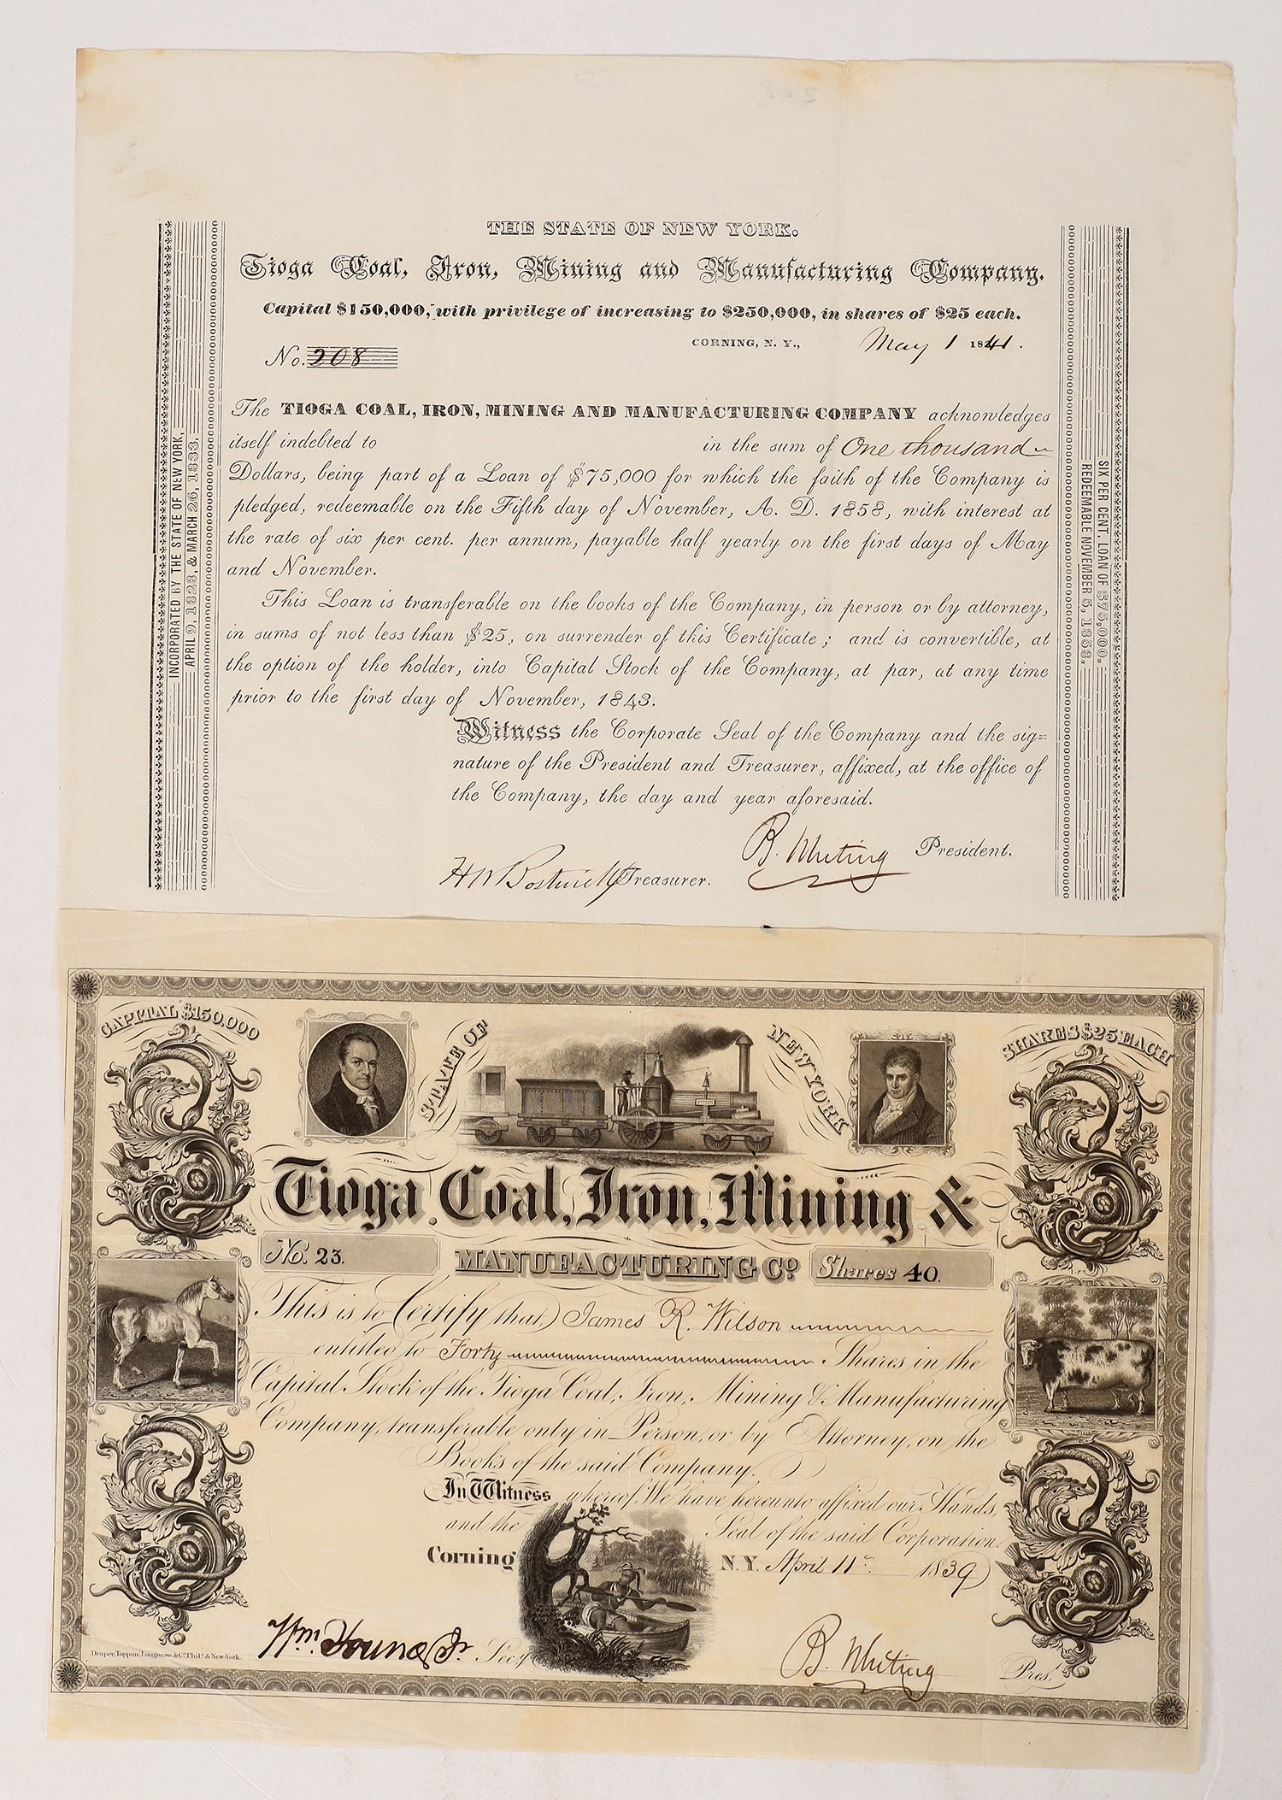 THE STATE OF NEW YORK.
Tioga Coal, Iron, Mining and Manufacturing Company.
Capital $150,000, with privilege of increasing to $250,000, in shares of $25 each.
CORNING, N. Y., May 1 1841.
No. 208
The TIOGA COAL, IRON, MINING AND MANUFACTURING COMPANY acknowledges
itself indebted to in the sum of One thousand
Dollars, being part of a Loan of $75,000 for which the faith of the Company is
pledged, redeemable on the Fifth day of November, A. D. 1858, with interest at
the rate of six per cent. per annum, payable half yearly on the first days of May
and November.
This Loan is transferable on the books of the Company, in person or by attorney,
in sums of not less than $25, on surrender of this Certificate; and is convertible, at
the option of the holder, into Capital Stock of the Company, at par, at any time
prior to the first day of November, 1843.
Witness the Corporate Seal of the Company and the sig=
nature of the President and Treasurer, affixed, at the office of
the Company, the day and year aforesaid.
B. Whiting President.
H W Bostwick Treasurer.
INCORPORATED BY THE STATE OF NEW YORK,
APRIL 9, 1828, & MARCH 26, 1833.
SIX PER CENT. LOAN OF $75,000.
REDEEMABLE NOVEMBER 5, 1858.
CAPITAL $150,000
STATE OF
NEW YORK
SHARES $25 EACH
Tioga Coal, Iron, Mining &
No. 23. MANUFACTURING Co. Shares 40.
This is to Certify that James R. Wilson
entitled to Forty Shares in the
Capital Stock of the Tioga Coal, Iron, Mining & Manufacturing
Company, transferable only in Person, or by Attorney, on the
Books of the said Company.
In Witness whereof, We have hereunto affixed our Hands,
and the Seal of the said Corporation.
Corning N.Y. April 11 1839
Wm. Young Jr. Secy
B. Whiting Prest.
Draper, Toppan, Longacre & Co. Phila. & New York.